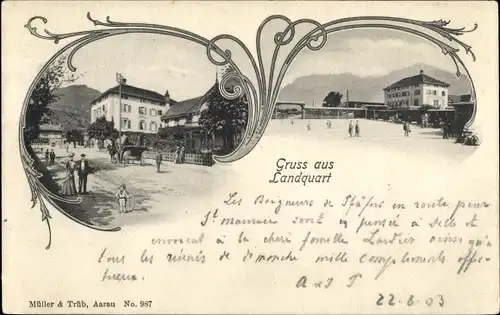 Gruss aus
Landquart
Les Baigneurs de Ffäfers en route pour
St Maurice sont en pensée à Selle et
envoient à la chère famille Lardier ainsi qu'à
tous les réunis de dimanche mille compliments affec-
tueux.
22-6-03
Müller & Trüb, Aarau No. 987